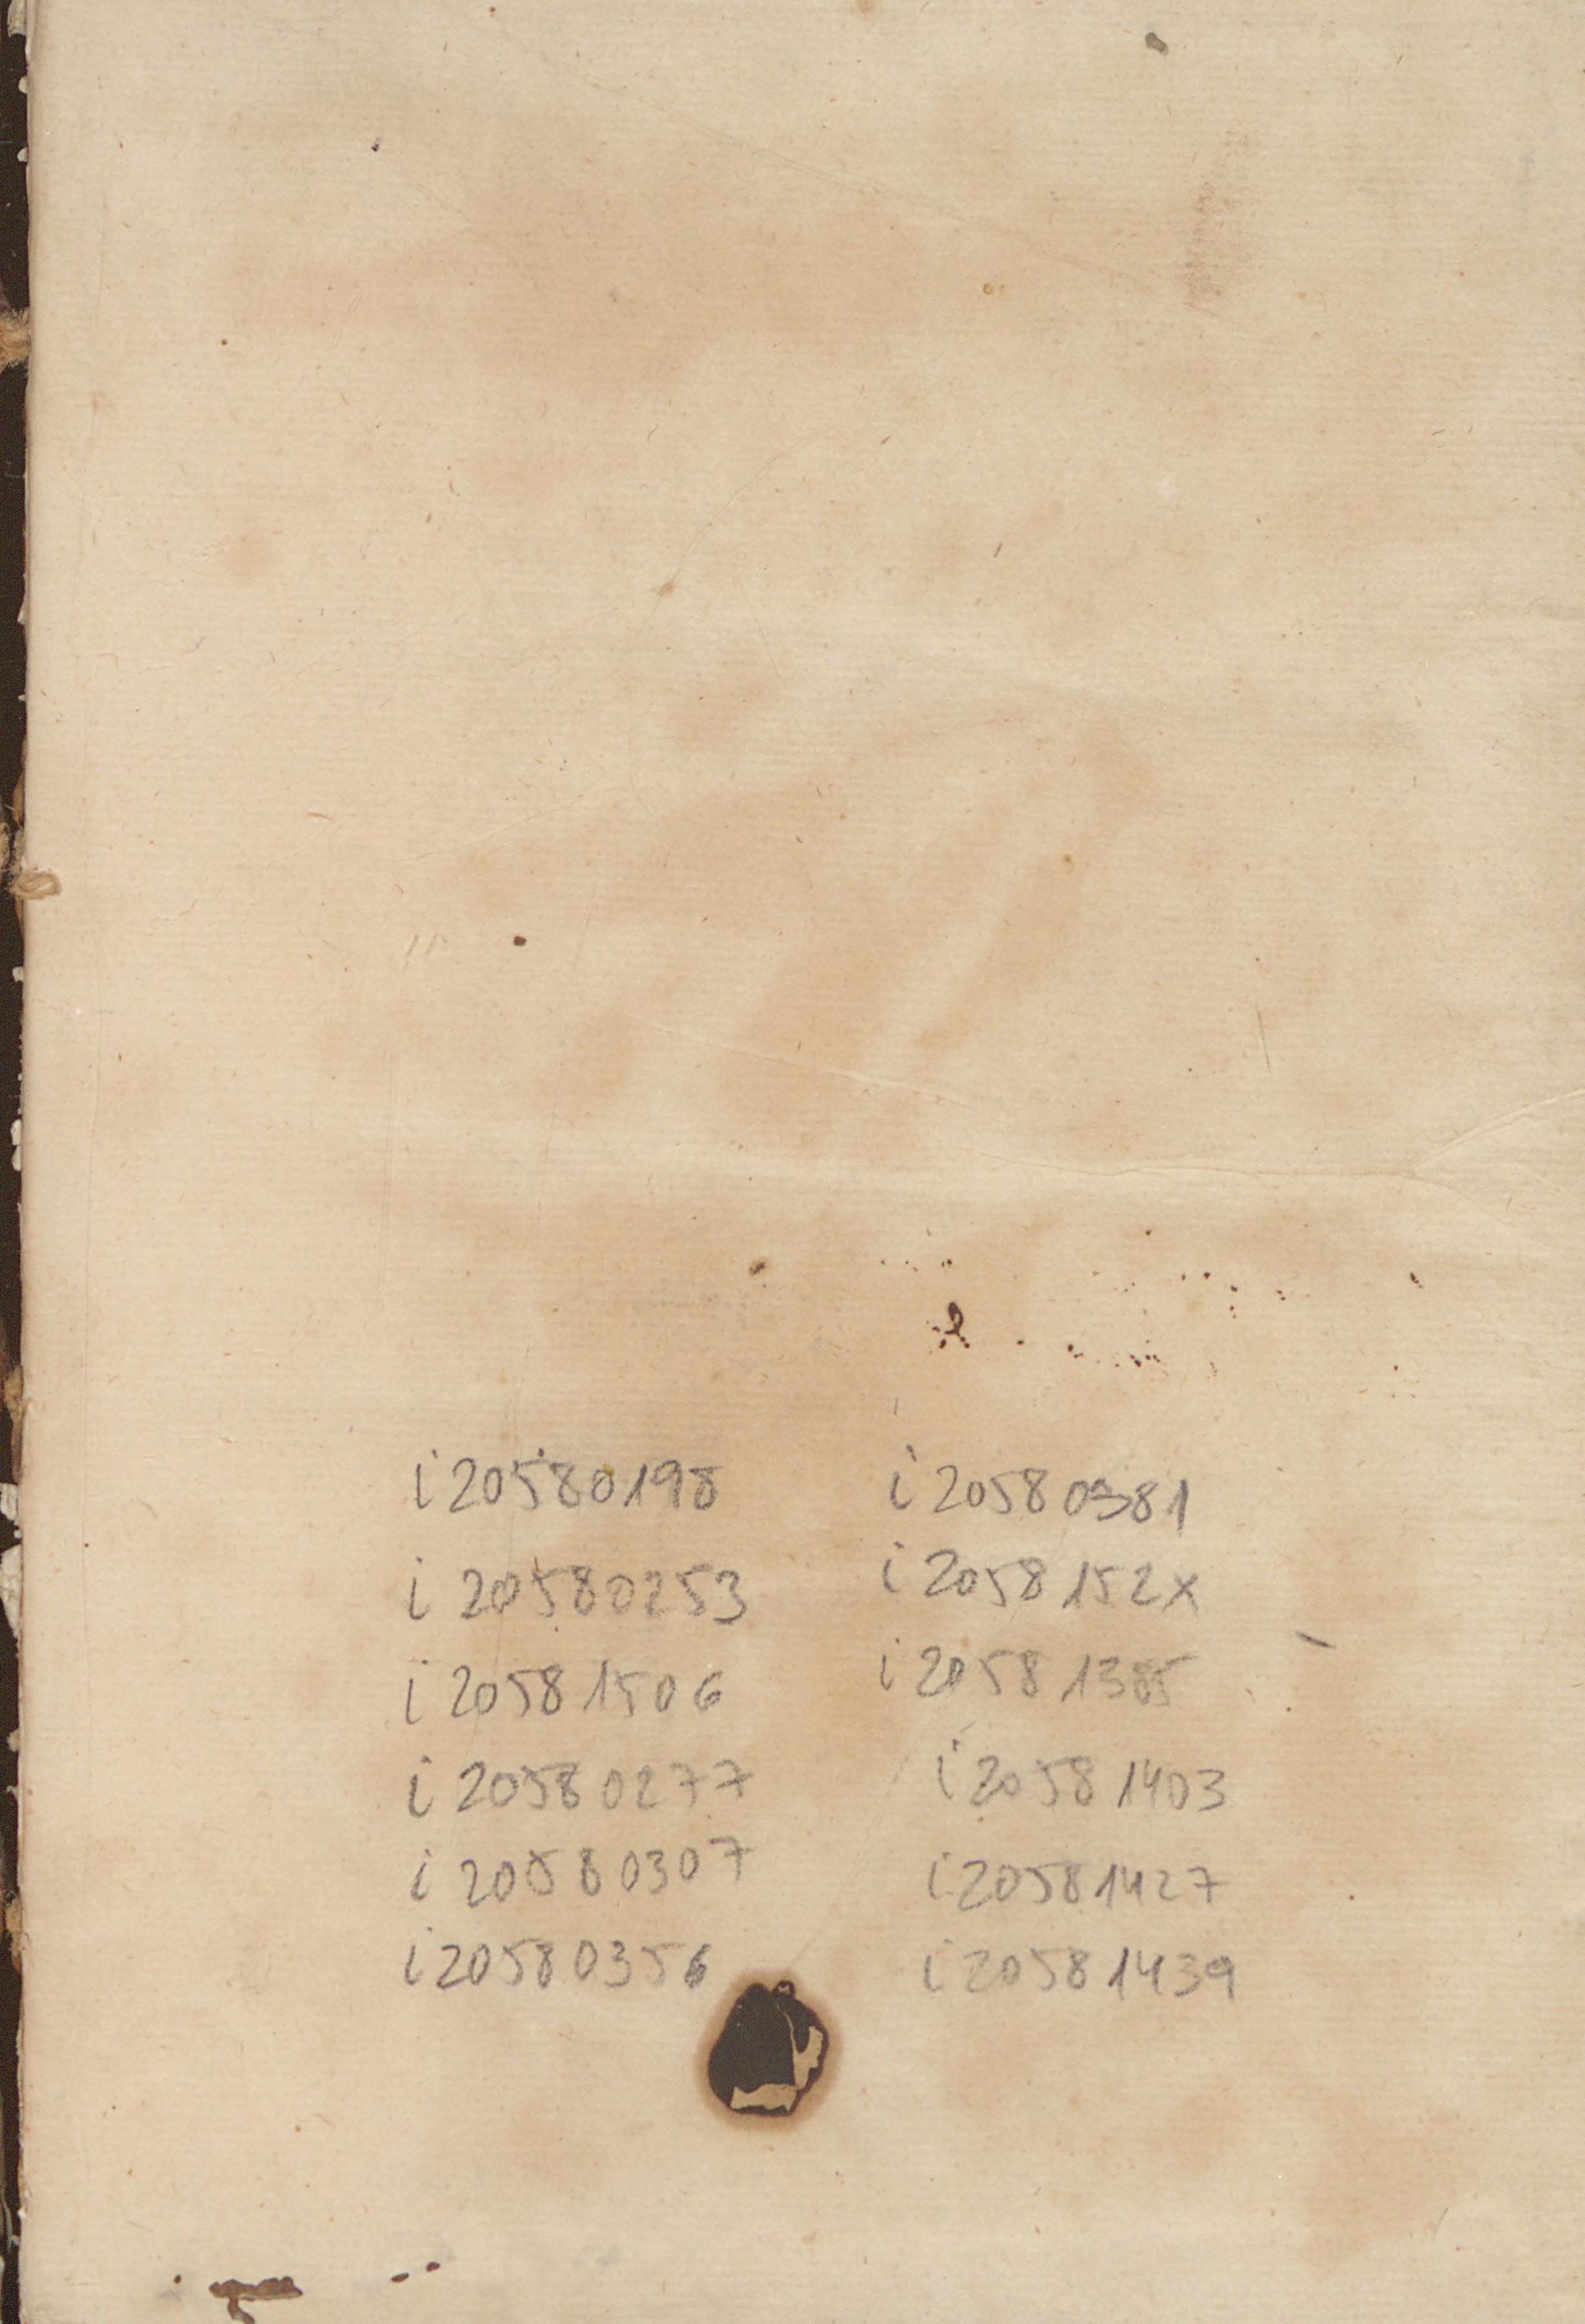 i20580198
i20580253
i20581506
i20580277
i20580307
i20580356
i20580381
i2058152x
i20581385
i20581403
i20581427
i20581439